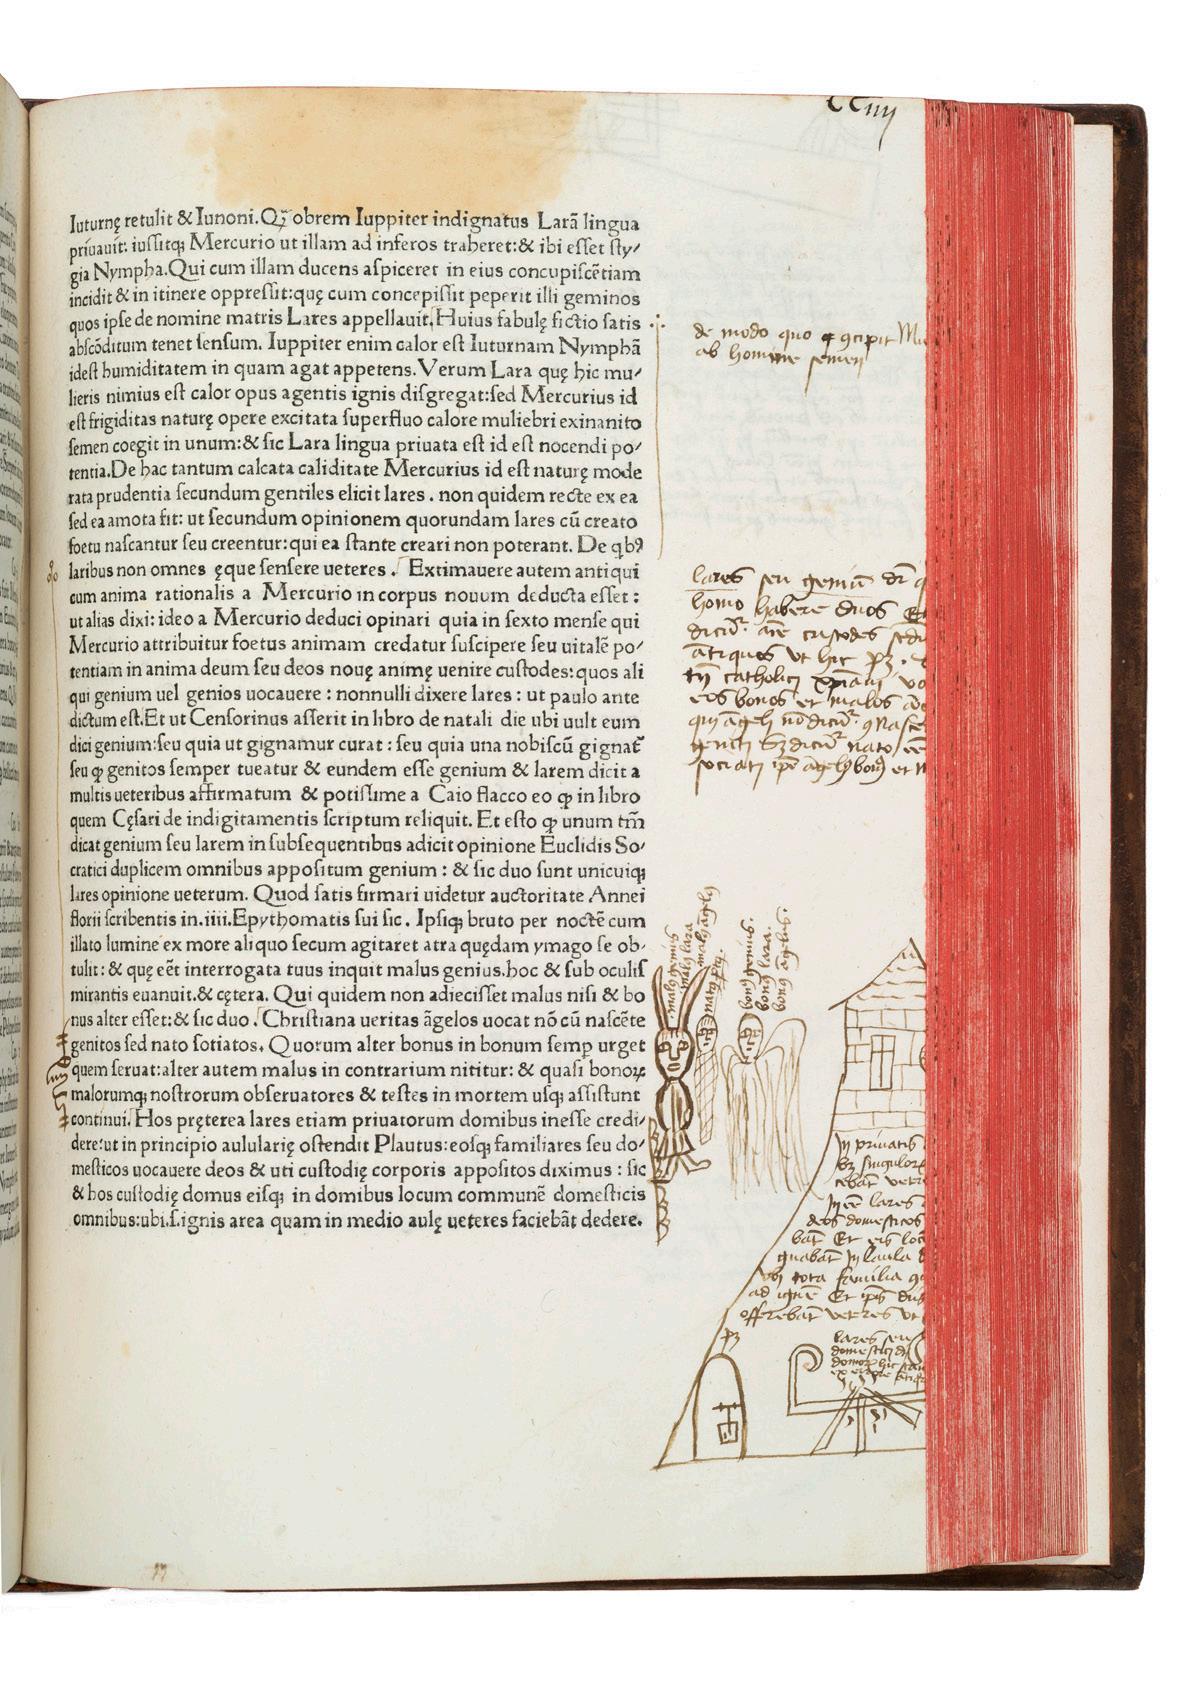 CCiiij
Iuturnę retulit & Iunoni.Qꝫ obrem Iuppiter indignatus Larā lingua
priuauit: iussitqꝫ Mercurio ut illam ad inferos traheret:& ibi esset sty/
gia Nympha.Qui cum illam ducens aspiceret in eius concupiscētiam
incidit & in itinere oppressit:quę cum concepissit peperit illi geminos
quos ipse de nomine matris Lares appellauit.Huius fabulę fictio satis
abscōditum tenet sensum. Iuppiter enim calor est Iuturnam Nymphā
idest humiditatem in quam agat appetens.Verum Lara quę hic mu/
lieris nimius est calor opus agentis ignis disgregat:sed Mercurius id
est frigiditas naturę opere excitata superfluo calore muliebri exinanito
semen coegit in unum:& sic Lara lingua priuata est id est nocendi po/
tentia.De hac tantum calcata caliditate Mercurius id est naturę mode
rata prudentia secundum gentiles elicit lares . non quidem recte ex ea
sed ea amota fit: ut secundum opinionem quorundam lares cū creato
foetu nascantur seu creentur:qui ea stante creari non poterant. De qbꝰ
laribus non omnes ęque sensere ueteres . Extimauere autem antiqui
cum anima rationalis a Mercurio in corpus nouum deducta esset :
ut alias dixi: ideo a Mercurio deduci opinari quia in sexto mense qui
Mercurio attribuitur foetus animam credatur suscipere seu uitalē po/
tentiam in anima deum seu deos nouę animę uenire custodes:quos ali
qui genium uel genios uocauere : nonnulli dixere lares : ut paulo ante
dictum est.Et ut Censorinus asserit in libro de natali die ubi uult eum
dici genium:seu quia ut gignamur curat : seu quia una nobiscū gignat᷑
seu ꝙ genitos semper tueatur & eundem esse genium & larem dicit a
multis ueteribus affirmatum & potissime a Caio flacco eo ꝙ in libro
quem Cęsari de indigitamentis scriptum reliquit. Et esto ꝙ unum tm̄
dicat genium seu larem in subsequentibus adicit opinione Euclidis So/
cratici duplicem omnibus appositum genium : & sic duo sunt unicuiqꝫ
lares opinione ueterum. Quod satis firmari uidetur auctoritate Annei
florii scribentis in.iiii.Epythomatis sui sic . Ipsiqꝫ bruto per noctē cum
illato lumine ex more aliquo secum agitaret atra quędam ymago se ob/
tulit: & quę eēt interrogata tuus inquit malus genius.hoc & sub oculis
mirantis euanuit.& cętera. Qui quidem non adiecisset malus nisi & bo
nus alter esset:& sic duo . Christiana ueritas āgelos uocat nō cū nascēte
genitos sed nato sotiatos. Quorum alter bonus in bonum semp urget
quem seruat:alter autem malus in contrarium nititur: & quasi bonoꝝ
malorumqꝫ nostrorum obseruatores & testes in mortem usqꝫ assistunt
continui. Hos pręterea lares etiam priuatorum domibus inesse credi/
dere:ut in principio aulularię ostendit Plautus:eosqꝫ familiares seu do/
mesticos uocauere deos & uti custodię corporis appositos diximus : sic
& hos custodię domus eisqꝫ in domibus locum communē domesticis
omnibus:ubi.s.ignis area quam in medio aulę ueteres faciebāt dedere.
de modo quo
ab homine semen
lares seu genium
homo habere duos
custodes
antiquos ut hic
catholici
eos bonos et malos
nato
malꝰ genius
malꝰ lara
malꝰ āgelꝰ
bonꝰ genius.
bonꝰ lara.
bonꝰ āgelus.
In priuatis
singulor
lares
deos domesticos
bāt Et eis loc
quabāt In laula
ubi tota familia
ad ignē Et
offerebāt veteres ut
lares seu
domestici